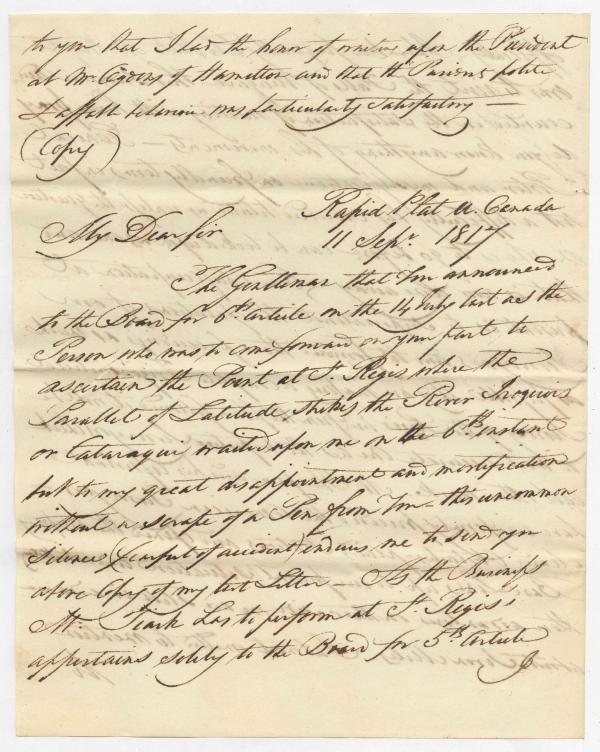 to you that I had the honor of waiting upon the President
at Mr. Ogdens of Hamilton and that the Parsons polite
& affable behavior was particularly satisfactory —
(Copy)
Rapid Plat U. Canada
My Dear Sir 11 Sepr. 1817
The Gentleman that You announced
to the Board for 6th. Article on the 14 July last as the
Person who was to come forward on your part to
ascertain the Point at St. Regis where the
Parallel of Latitude strikes the River Iroquois
or Cataraqui waited upon me on the 6th. instant
but to my great disappointment and mortification
without a scrape of a Pen from You — this uncommon
silence (fearful of accident) induces me to send you
above Copy of my last Letter — As the Business
Mr. Tiark has to perform at St. Regis
appertains solely to the Board for 5th. Article